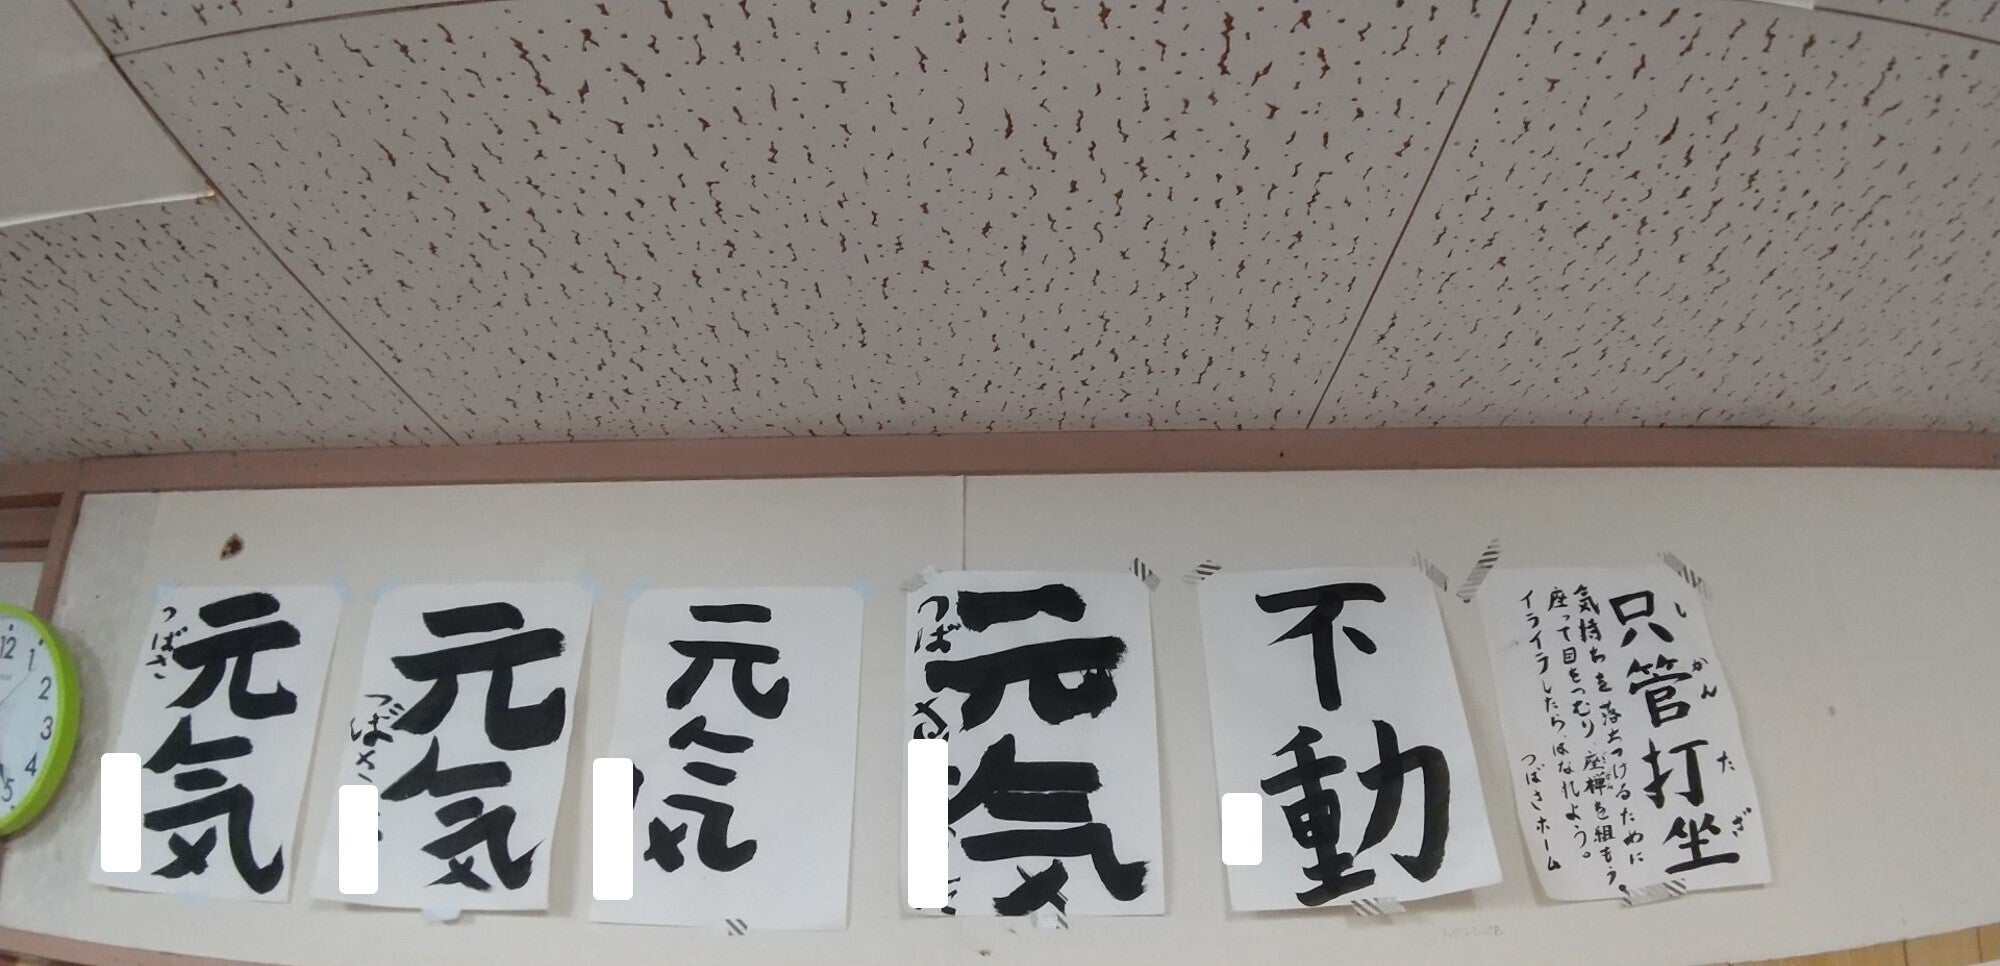 12
1
2
3
4
5
元気
つばさ
元気
つばさ
元気
元気
つばさ
不動
只管打坐
しかんたざ
気持ちを落ちつけるために
座って目をつむり座禅を組もう。
イライラしたらはなれよう。
つばさホーム